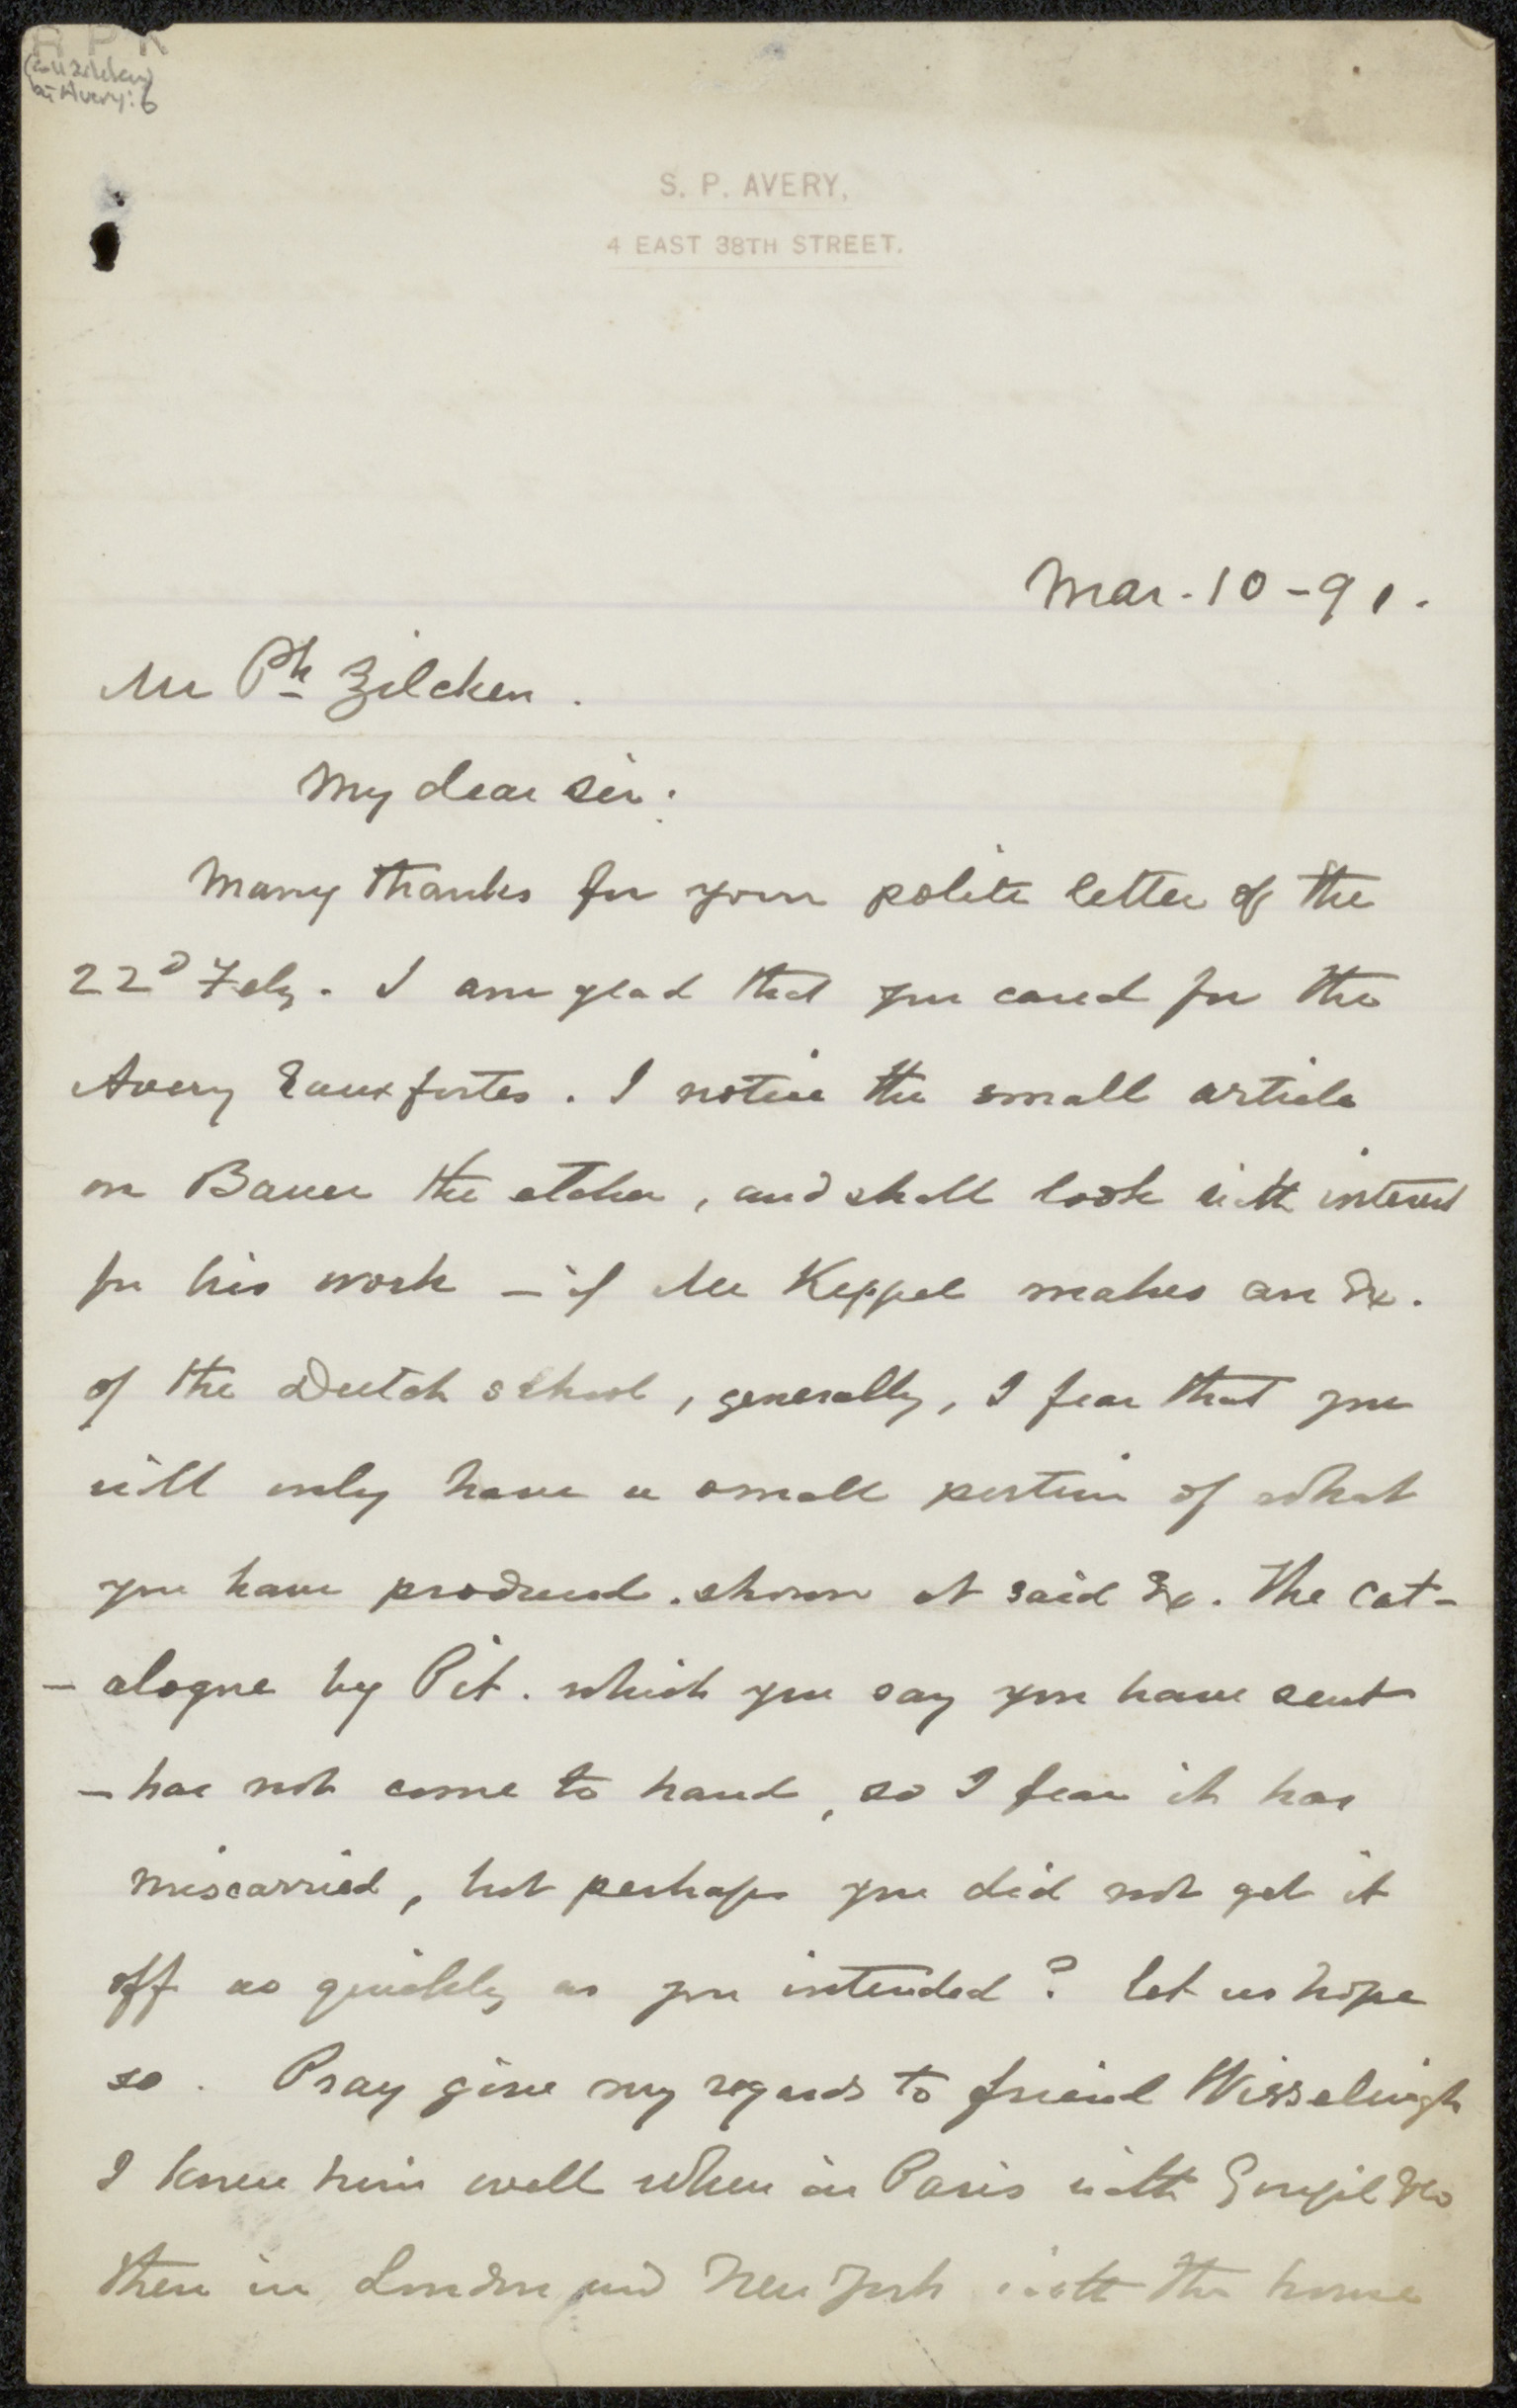 H P K
(aan Zilcken)
br Avery: 6
S. P. AVERY,
4 EAST 38TH STREET.
Mar. 10 - 91.
Mr Ph Zilcken.
My dear Sir:
Many thanks for your polite letter of the
22d Feby. I am glad that you cared for the
Avery Eaux fortes. I notice the small article
on Bauer the etcher, and shall look with interest
for his work - if Mr Keppel makes an Ex.
of the Dutch school, generally, I fear that you
will only have a small portion of what
you have produced. shown at said Ex. The cat-
- alogue by Pit. which you say you have sent
- has not come to hand, so I fear it has
miscarried, but perhaps you did not get it
off as quickly as you intended? let us hope
so. Pray give my regards to friend Wisselingh
I knew him well when in Paris with Goupil & Co
then in London and New York with the house